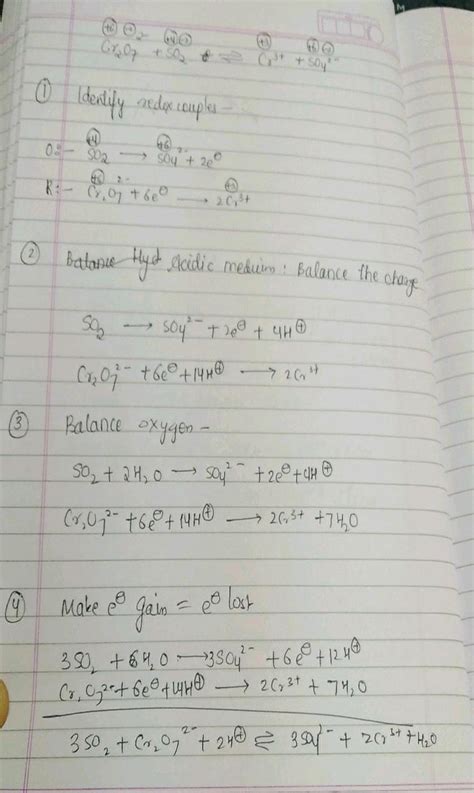 +6 -2 +4 -2 +3 +6 -2
Cr₂O₇²⁻ + SO₂ ⇌ Cr³⁺ + SO₄²⁻
① Identify redox couples –
+4 +6
O:- SO₂ ⟶ SO₄²⁻ + 2e⊖
+6 +3
R:- Cr₂O₇²⁻ + 6e⊖ ⟶ 2Cr³⁺
② Balance Hyd Acidic medium : Balance the charge
SO₂ ⟶ SO₄²⁻ + 2e⊖ + 4H⊕
Cr₂O₇²⁻ + 6e⊖ + 14H⊕ ⟶ 2Cr³⁺
③ Balance oxygen –
SO₂ + 2H₂O ⟶ SO₄²⁻ + 2e⊖ + 4H⊕
Cr₂O₇²⁻ + 6e⊖ + 14H⊕ ⟶ 2Cr³⁺ + 7H₂O
④ Make e⊖ gain = e⊖ lost
3SO₂ + 6H₂O ⟶ 3SO₄²⁻ + 6e⊖ + 12H⊕
Cr₂O₇²⁻ + 6e⊖ + 14H⊕ ⟶ 2Cr³⁺ + 7H₂O
3SO₂ + Cr₂O₇²⁻ + 2H⊕ ⇌ 3SO₄²⁻ + 2Cr³⁺ + H₂O